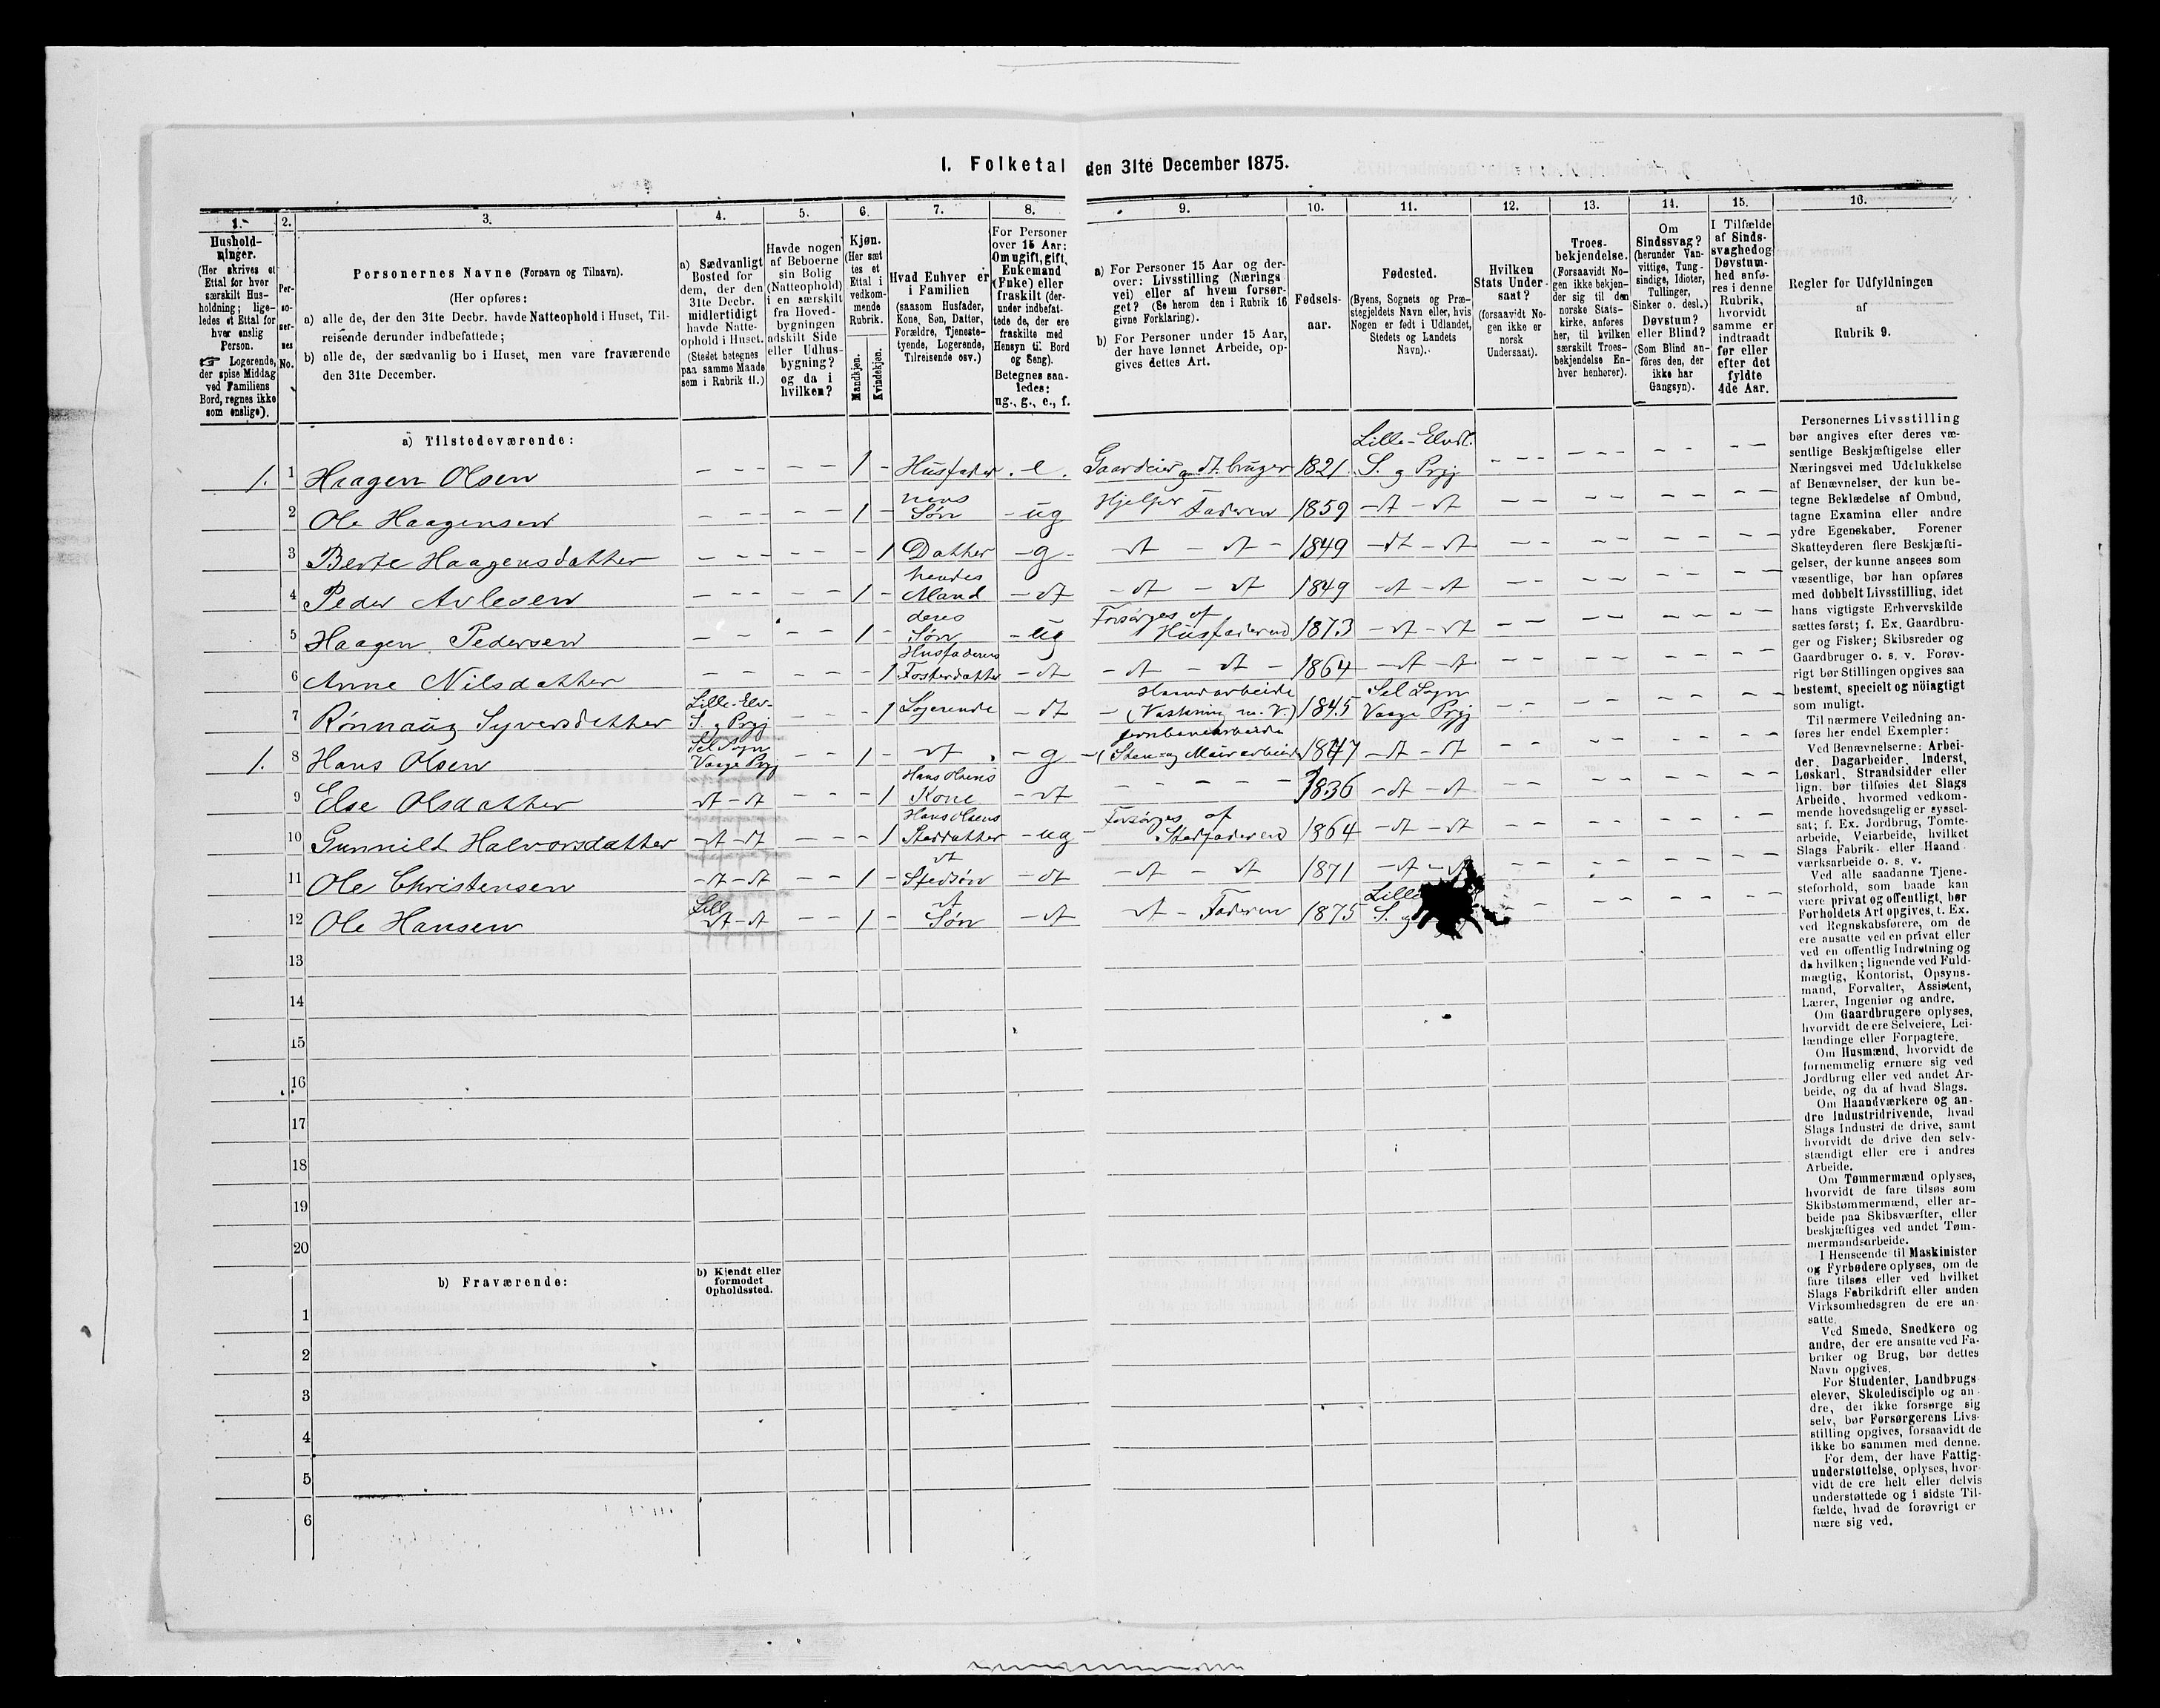 I. Folketal den 31te December 1875.
1. 2. 3. 4. 5. 6. 7. 8. 9. 10. 11. 12. 13. 14. 15. 16.
Hushold-
ninger.
(Her skrives et
Ettal for hver
særskilt Hus-
holdning; lige-
ledes et Ettal for
hver enslig
Person.
☞ Logerende,
der spise Middag
ved Familiens
Bord, regnes ikke
som enslige).
Per-
so-
ner-
nes
No.
Personernes Navne (Fornavn og Tilnavn).
(Her opføres:
a) alle de, der den 31te Decbr. havde Natteophold i Huset, Til-
reisende derunder indbefattede;
b) alle de, der sædvanlig bo i Huset, men vare fraværende
den 31te December.
a) Sædvanligt
Bosted for
dem, der den
31te Decbr.
midlertidigt
havde Natte-
ophold i Huset.
(Stedet betegnes
paa samme Maade
sem i Rubrik 11.)
Havde nogen
af Beboerne
sin Bolig
(Natteophold)
i en særskilt
fra Hoved-
bygningen
adskilt Side
eller Udhus-
bygning?
og da i
hvilken?
Kjøn.
(Her sæt
tes et
Ettal i
vedkom-
mende
Rubrik.
Mandkjøn.
Kvindekjøn.
Hvad Enhver er
i Familien
(saasom Husfader,
Kone, Søn, Datter,
Forældre, Tjeneste-
tyende, Logerende,
Tilreisende osv.)
For Personer
over 15 Aar:
Om ugift, gift,
Enkemand
(Enke) eller
fraskilt (der-
under indbefat-
tede de, der ere
fraskilte med
Hensyn til Bord
og Seng).
Betegnes saa-
ledes:
ug., g., e., f.
a) For Personer 15 Aar og der-
over: Livsstilling (Nærings
vei) eller af hvem forsør-
get? (Se herom den i Rubrik 16
givne Forklaring).
b) For Personer under 15 Aar,
der have lønnet Arbeide, op-
gives dettes Art.
Fødsels-
aar.
Fødested.
(Byens, Sognets og Præ-
stegjeldets Navn eller, hvis
Nogen er født i Udlandet,
Stedets og Landets
Navn).
Hvilken
Stats Under
saat?
(forsaavidt No-
gen ikke er
norsk
Undersaat).
Troes-
bekjendelse.
(Forsaavidt No-
gen ikke bekjen-
der sig til den
norske Stats-
kirke, anføres
her, til hvilken
særskilt Troes-
bekjendelse En-
hver henhører).
Om
Sindssvag?
(herunder Van-
vittige, Tung-
sindige, Idioter,
Tullinger,
Sinker o. desl.)
Døvstum?
eller Blind?
(Som Blind an-
føres den, der
ikke har
Gangsyn).
I Tilfælde
af Sinds-
svaghed og
Døvstum-
hed anfø-
res i denne
Rubrik,
hvorvidt
samme er
indtraadt
før eller
efter det
fyldte
4de Aar.
Regler for Udfyldningen
af
Rubrik 9.
a) Tilstedeværende:
1. 1 Haagen Olsen - - - - - 1 - Husfader e. Gaardeier og dt. bruger 1821 Lille-Elvd. S. og Prgj
2 Ole Haagensen 1 - hens Søn - ug Hjelper Faderen 1859 - dt - dt
3 Berte Haagensdatter - 1 Datter - g - dt - dt - 1849 - dt - dt
4 Peder Avlesen 1 - hendes Mand - dt - dt - dt 1849 - dt - dt
5 Haagen Pedersen 1 - deres Søn - ug Forsørges af Husfaderen 1873 - dt - dt
6 Anne Nilsdatter 1 Husfaderens Fosterdatter - dt - dt - dt - 1864 - dt - dt
7 Rønnaug Syversdatter Lille-Elv- S. og Prgj - 1 Logerende - dt Haandarbeide (Vaskning m. V.) 1845 Sel Sogn Vaage Prgj
1. 8 Hans Olsen Sel Sogn Vaage Prgj 1 - dt - g Jernbanearbeide (Sten- og Murarbeide 1847 - dt - dt
9 Else Olsdatter dt - dt - 1 Hans Olsens Kone - dt - - - - 1836 - dt - dt
10 Gunnild Halvorsdatter - dt - dt - 1 Hans Olsens Steddatter - ug - Forsørges af Stedfaderen 1864 - dt - dt
11 Ole Christensen - dt - dt 1 - dt Stedsøn - dt - dt - dt 1871 - dt - dt
12 Ole Hansen Lill dt - dt 1 - dt Søn - dt dt - Faderen 1875 Lille S. og
13
14
15
16
17
18
19
20
b) Fraværende:
b) Kjendt eller
formodet
Opholdssted.
1
2
3
4
5
6
Personernes Livsstilling
bør angives efter deres væ-
sentlige Beskjæftigelse eller
Næringsvei med Udelukkelse
af Benævnelser, der kun be-
tegne Beklædelse af Ombud,
tagne Examina eller andre
ydre Egenskaber. Forener
Skatteyderen flere Beskjæfti-
gelser, der kunne ansees som
væsentlige, bør han opføres
med dobbelt Livsstilling, idet
hans vigtigste Erhvervskilde
sættes først; f. Ex. Gaardbru-
ger og Fisker; Skibsreder og
Gaardbruger o. s. v. Forøv-
rigt bør Stillingen opgives saa
bestemt, specielt og nöiagtigt
som muligt.
Til nærmere Veiledning an-
føres her endel Exempler:
Ved Benævnelserne: Arbei-
der, Dagarbeider, Inderst,
Løskarl, Strandsidder eller
lign. bør tilføies det Slags
Arbeide, hvormed vedkom-
mende hovedsagelig er syssel-
sat; f. Ex. Jordbrug, Tomte-
arbeide, Veiarbeide, hvilket
Slags Fabrik- eller Haand
værksarbeide o. s. v.
Ved alle saadanne Tjene-
steforhold, som baade kan
være privat og offentligt, bør
Forholdets Art opgives, t. Ex.
ved Regnskabsførere, om de
ere ansatte ved en privat eller
ved en offentlig Indretning og
da hvilken; lignende ved Fuld-
mægtig, Kontorist, Opsyns-
mand, Forvalter, Assistent,
Lærer, Ingeniør og andre.
Om Gaardbrugere oplyses,
hvorvidt de ere Selveiere, Lei-
lændinge eller Forpagtere.
Om Husmænd, hvorvidt de
fornemmelig ernære sig ved
Jordbrug eller ved andet Ar-
beide, og da af hvad Slags.
Om Haandværkere og an-
dre Industridrivende, hvad
Slags Industri de drive, samt
hvorvidt de drive den selv-
stændigt eller ere i andres
Arbeide.
Om Tømmermænd oplyses,
hvorvidt de fare tilsøs som
Skibstømmermænd, eller ar-
beide paa Skibsværfter, eller
beskjæftiges ved andet Tøm-
mermandsarbeide.
I Henseende til Maskinister
og Fyrbødere oplyses, om de
fare tilsøs eller ved hvilket
Slags Fabrikdrift eller anden
Virksomhedsgren de ere an-
satte.
Ved Smede, Snedkere og
andre, der ere ansatte ved Fa-
briker og Brug, bør dettes
Navn opgives.
For Studenter, Landbrugs
elever, Skoledisciple og an-
dre, der ikke forsørge sig
selv, bør Forsørgerens Livs-
stilling opgives, forsaavidt de
ikke bo sammen med denne.
For dem, der have Fattig-
understøttelse, oplyses, hvor-
vidt de ere helt eller delvis
understøttede og i sidste Til-
fælde, hvad de forøvrigt er
nære sig ved.